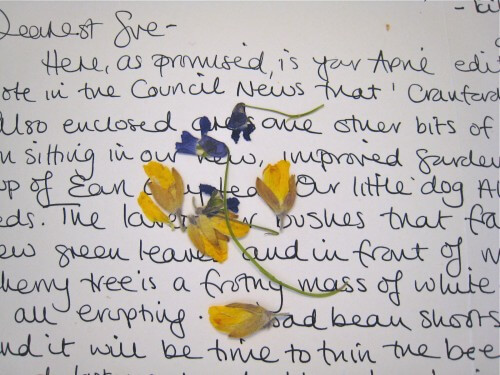 - bi
Dearest Sve-
Here, as promised, is your April edi
ote in the Council News that 'Cranford
Also enclosed are some other bits of
n sitting in our new, improved garden
up of Earl Our little dog A
eds. The bushes that fa
ew green leaves and in front of m
cherry tree is a frothy mass of white
all erupting. bean shoots
nd it will be time to thin the bee